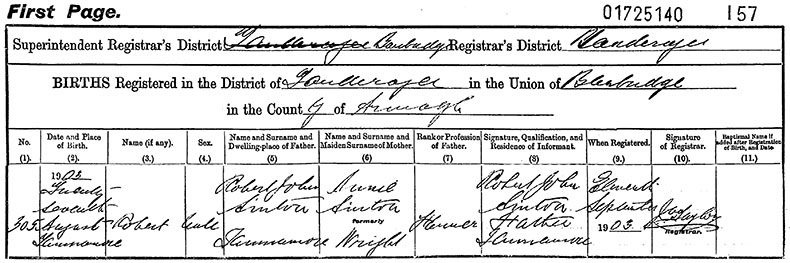 First Page.
01725140 157
Superintendent Registrar's District Tanderagee Banbridge Registrar's District Tanderagee
BIRTHS Registered in the District of Tanderagee in the Union of Banbridge
in the County of Armagh
No. Date and Place of Birth. Name (if any). Sex. Name and Surname and Dwelling-place of Father. Name and Surname and Maiden Surname of Mother. Rank or Profession of Father. Signature, Qualification, and Residence of Informant. When Registered. Signature of Registrar. Baptismal Name if added after Registration of Birth, and Date
(1). (2). (3.) (4.) (5) (6) (7) (8) (9.) (10). (11.)
1903 Robert John Annie Robert John Eleventh
Twenty-
seventh Sinton Sinton Sinton September
305 August Robert Male formerly Farmer Father 1903. Registrar.
Wright